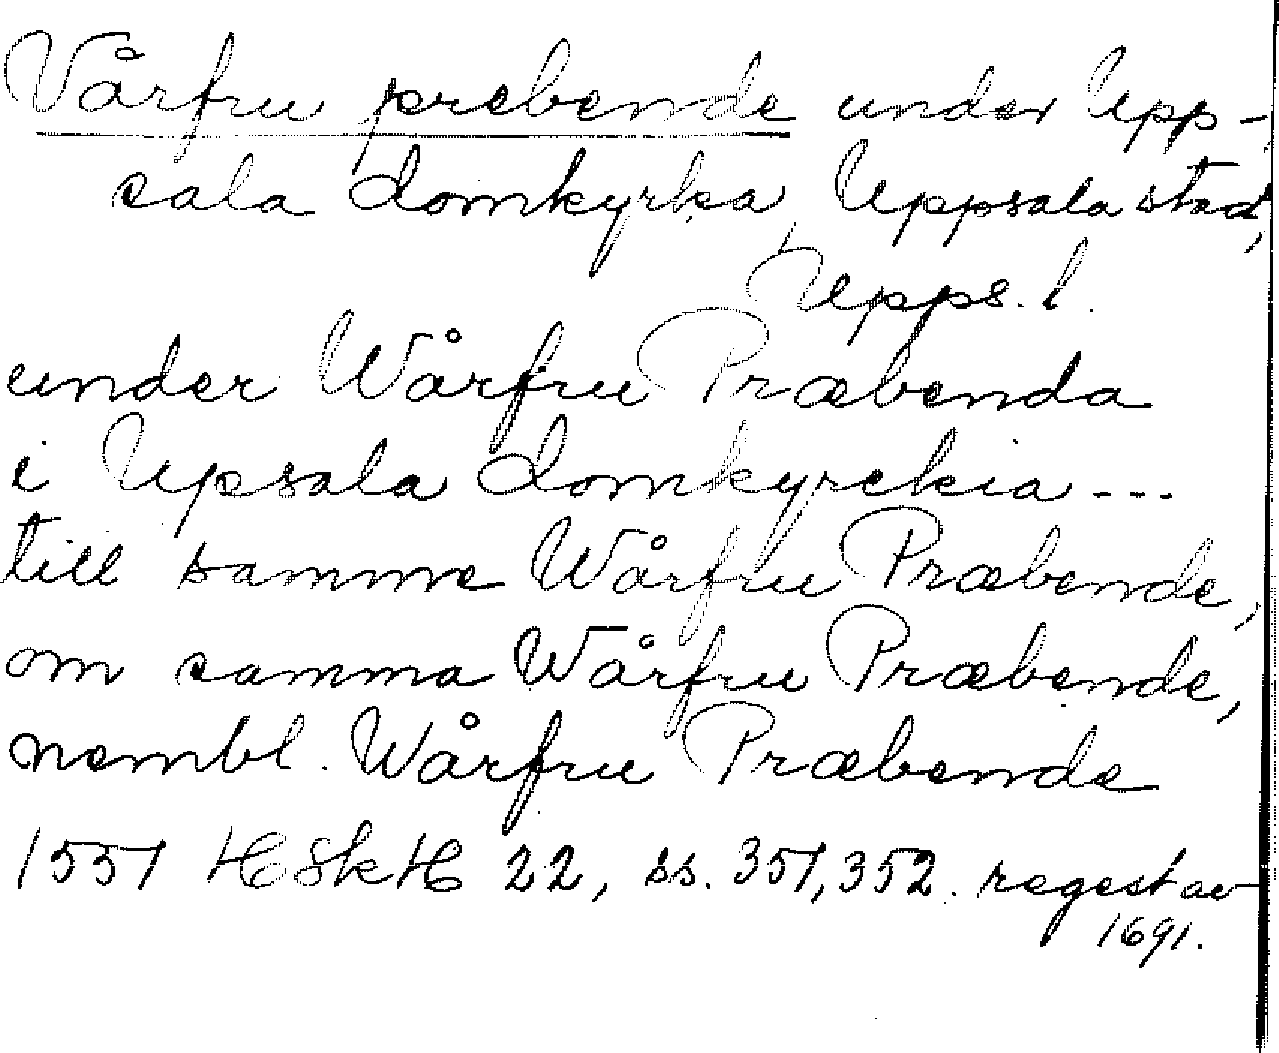 Vårfru prebende under Upp-
sala domkyrka, Uppsala stad,
Upps. l.
under Wårfru Præbenda
i Upsala domkyrckia ---
till samme Wårfru Præbende,
om samma Wårfru Præbende,
nembl. Wårfru Præbende
1551 HSkH 22, ss. 351, 352. regest av
1691.